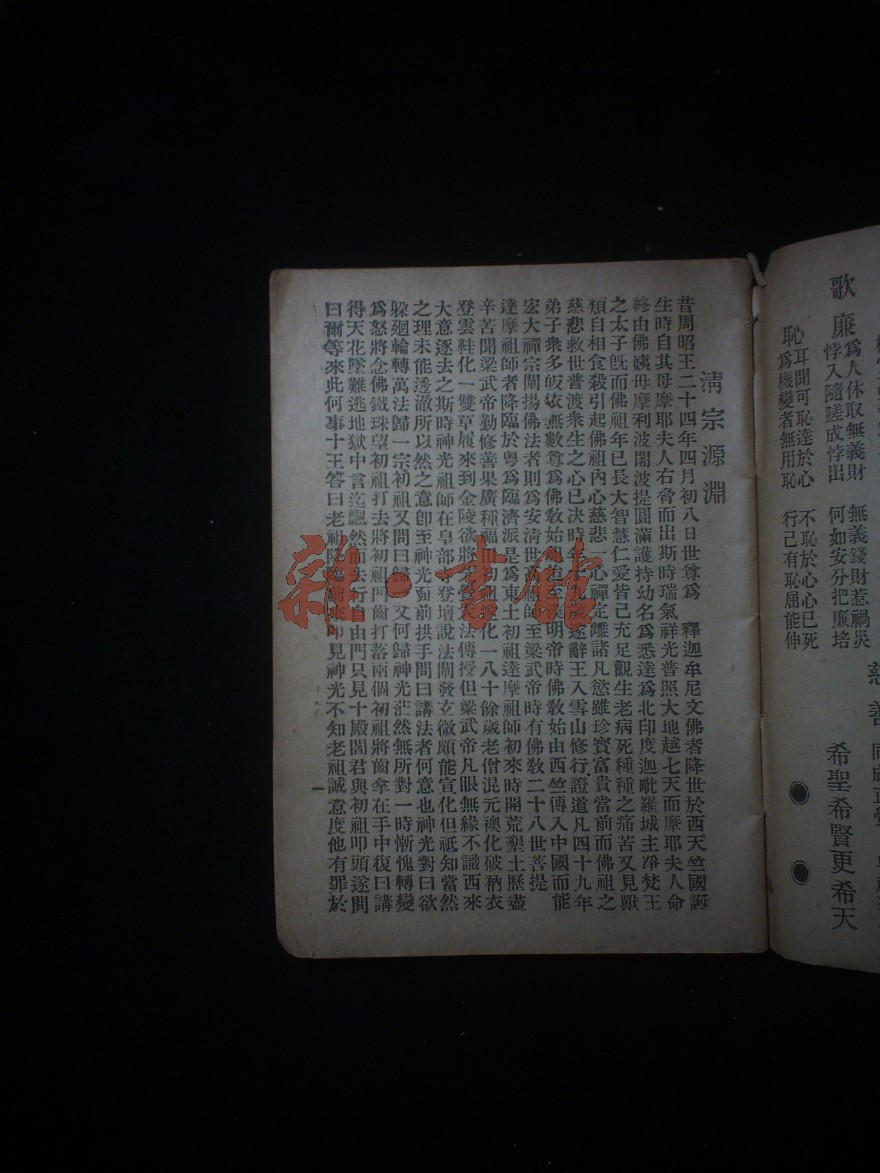 歌
廉
為人休取無義財
悖入隨嗟成悖出
無義錢財惹禍災
何如安分把廉培
恥
耳聞可恥達於心
為機變者無用恥
不恥於心心已死
行己有恥屈能伸
慈善
希聖希賢更希天
清宗源淵
昔周昭王二十四年四月初八日世尊為　釋迦牟尼文佛者降世於西天竺國誕
生時自其母摩耶夫人右脅而出斯時瑞氣祥光普照大地越七天而摩耶夫人命
終由佛姨毋摩利波闍波提圓滿護持幼名為悉達為北印度迦毗羅城主淨梵王
之太子既而佛祖年已長大智慧仁愛皆已充足觀生老病死種種之痛苦又見獸
類自相食殺引起佛祖內心慈悲一心禪定離諸凡慾雖珍寶富貴當前而佛祖之
慈悲救世普渡衆生之心已决時年遂辭王入雪山修行證道凡四十九年
弟子衆多皈依無數尊為佛敎始至漢明帝時佛敎始由西竺傳入中國而能
宏大禪宗闡揚佛法者則為安淸世師至梁武帝時有佛敎二十八世菩提
達摩祖師者降臨於粤為臨濟派是為東土初祖達摩祖師初來時開荒墾土歷盡
辛苦聞梁武帝勤修善果廣種福田初祖化一八十餘歲老僧混元襖化破衲衣
登雲鞋化一雙草履來到金陵欲將法傳授但梁武帝凡眼無緣不識西來
大意逐去之斯時神光祖師在皇部登壇說法闡發玄微頗能宣化但祇知當然
之理未能透澈所以然之意卽至神光面前拱手問曰講法者何意也神光對曰欲
躱廻輪轉萬法歸一宗初祖又問曰歸一又何歸神光茫然無所對一時慚愧轉變
為怒將念佛鐵珠望初祖打去將初祖門齒打落兩個初祖將齒拿在手中復曰講
得天花墜難逃地獄中言迄飄然而去行自由門只見十殿閻君與初祖叩頭遂問
曰爾等來此何事十王答曰老祖降臨前來卽見神光不知老祖誠意度他有罪於
一
雜·書館